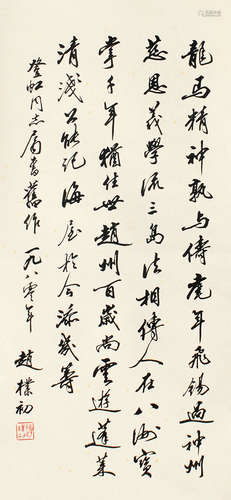 龍馬精神孰与儔虎年飛錫過神州
慈恩義學流三島法相傳人在八洲寶
掌千年猶住世趙州百歲尚雲遊蓬萊
清淺公能記海屋於今添幾籌
登虹同志屬書舊作 一九八零年 趙樸初